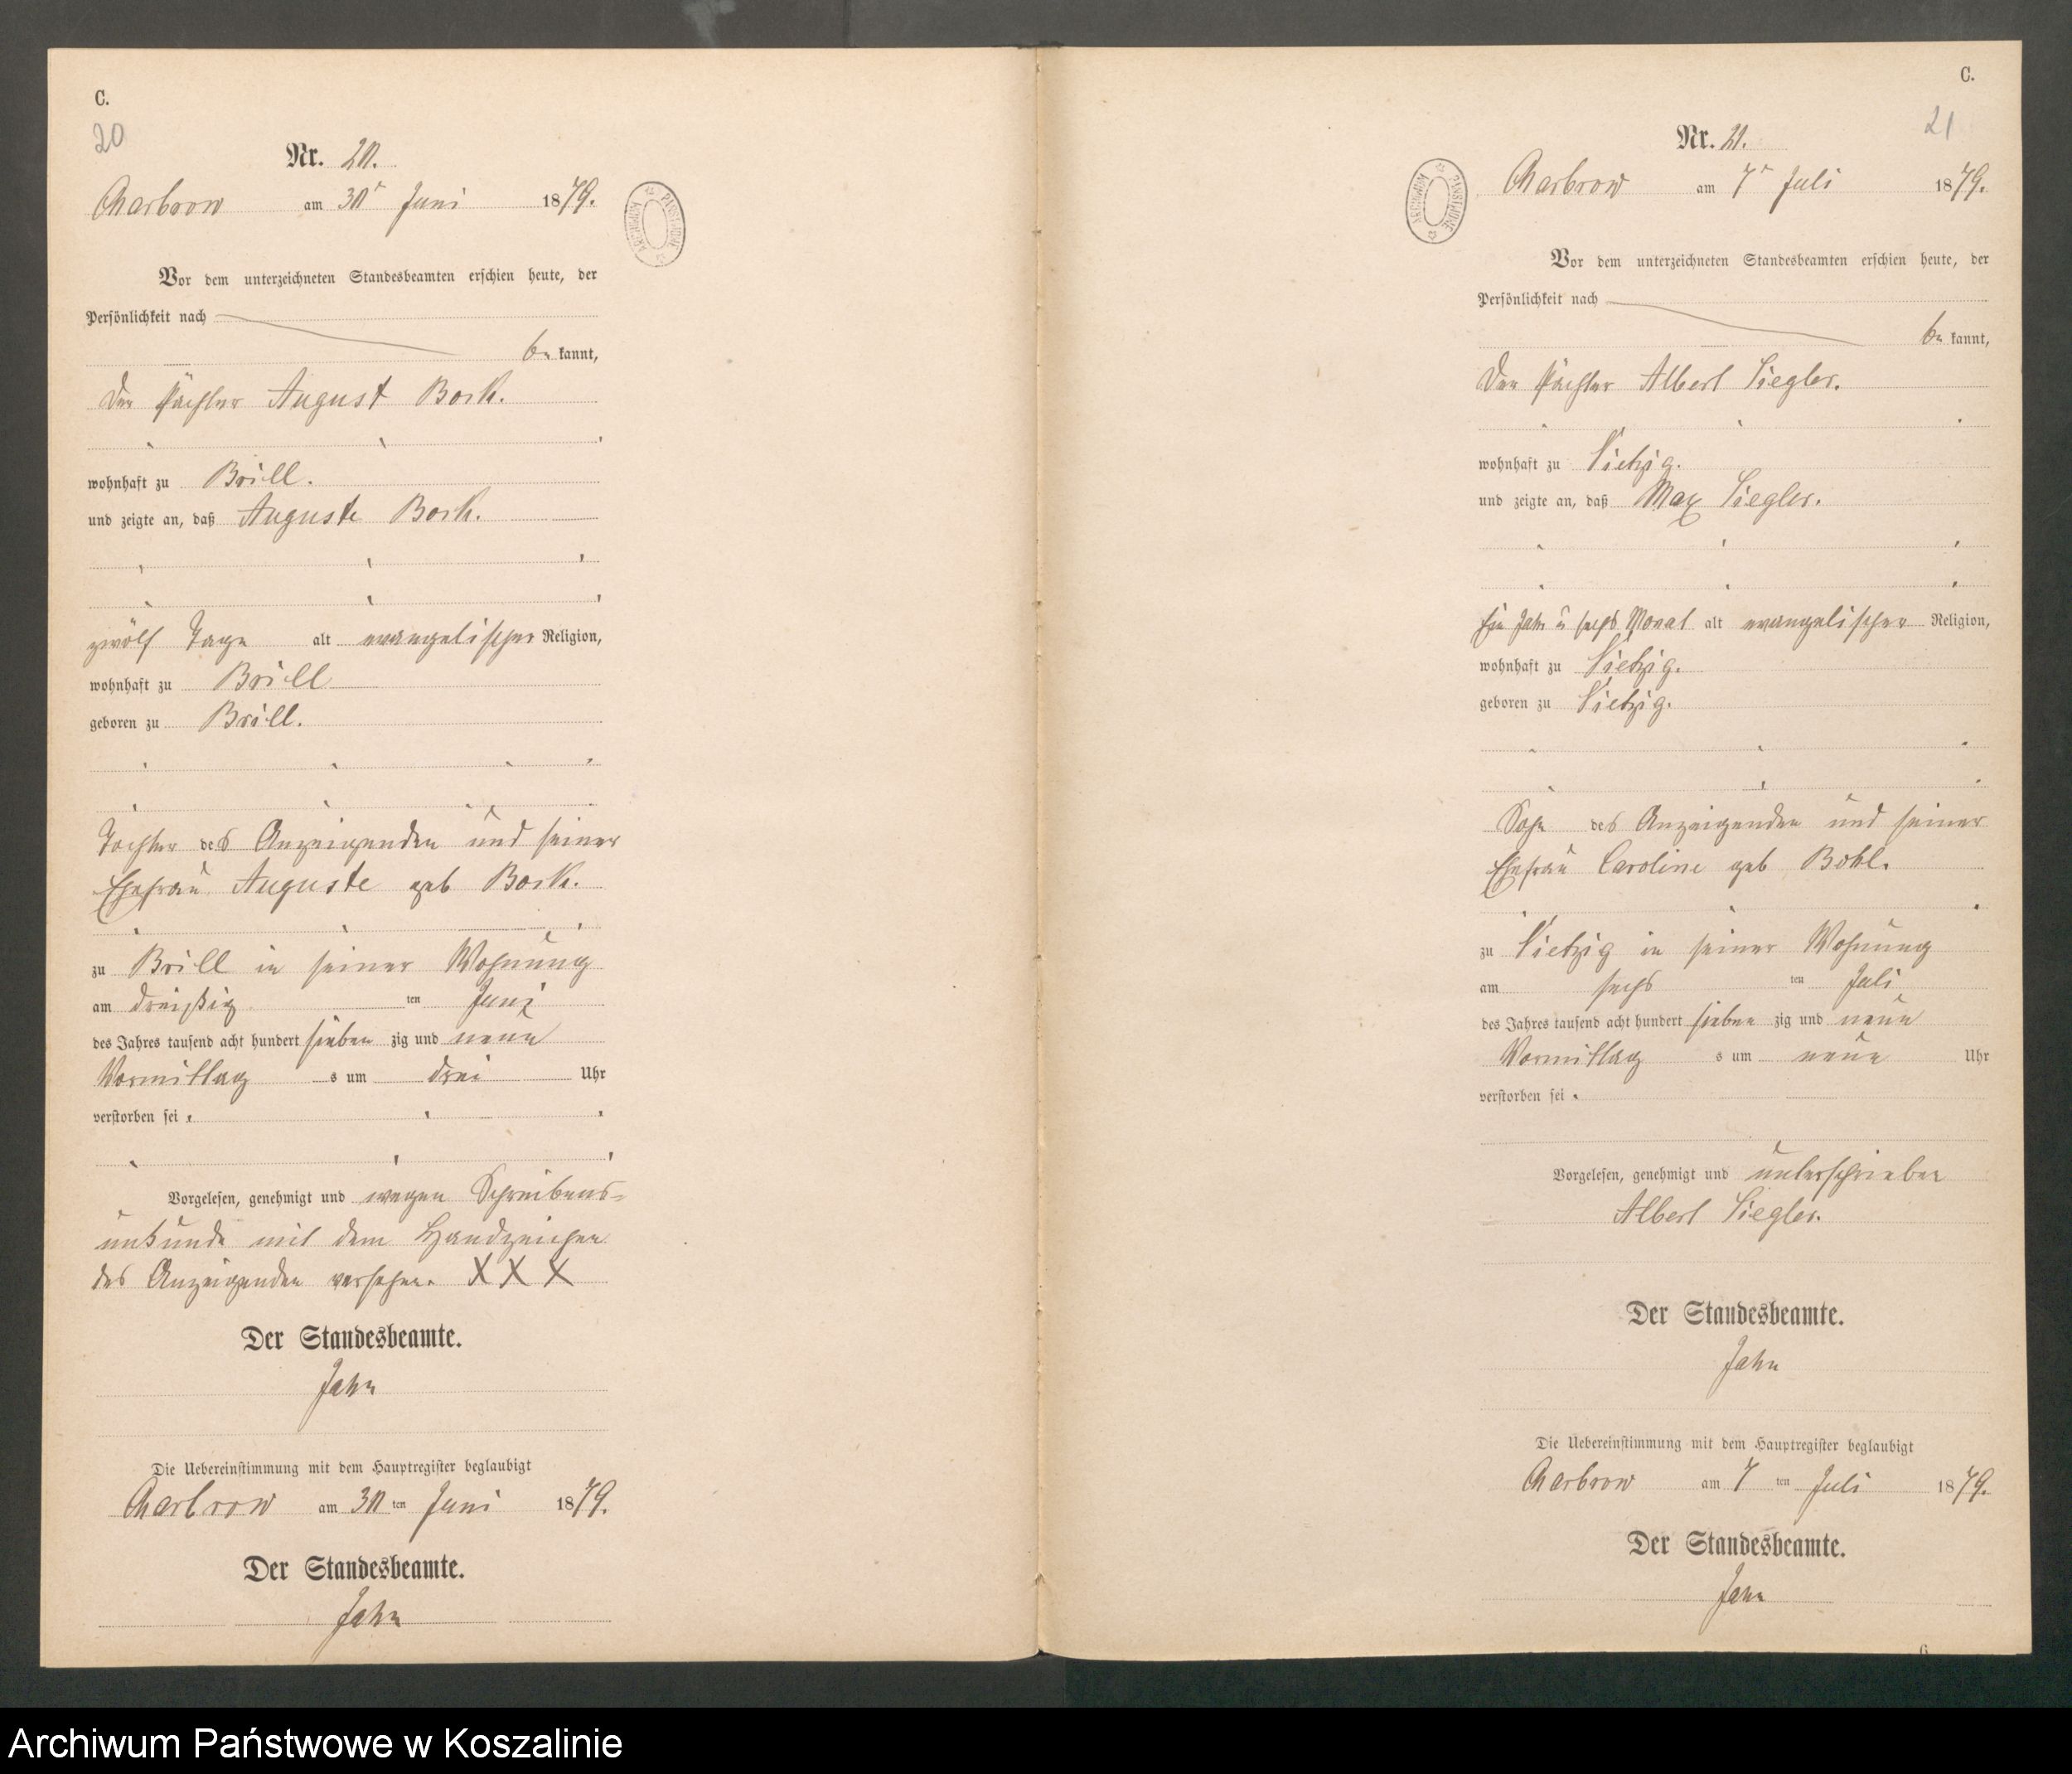 C.
20
Nr. 20.
Charbrow am 30t Juni 1879.
ARCHIWUM PAŃSTWOWE
Vor dem unterzeichneten Standesbeamten erschien heute, der
Persönlichkeit nach
be kannt,
der Pächter August Bork.
wohnhaft zu Brill.
und zeigte an, daß Auguste Bork.
zwölf Tage alt evangelischer Religion,
wohnhaft zu Brill
geboren zu Brill.
Tochter des Anzeigenden und seiner
Ehefrau Auguste geb Bork.
zu Brill in seiner Wohnung
am dreißig ten Juni
des Jahres tausend acht hundert sieben zig und neun
Vormittag s um drei Uhr
verstorben sei
Vorgelesen, genehmigt und wegen Schreibens-
unkunde mit dem Handzeichen
des Anzeigenden versehen. X X X
Der Standesbeamte.
Jahn
Die Uebereinstimmung mit dem Hauptregister beglaubigt
Charbrow am 30 ten Juni 1879.
Der Standesbeamte.
Jahn
C.
21
Nr. 21.
Charbrow am 7t Juli 1879.
ARCHIWUM PAŃSTWOWE
Vor dem unterzeichneten Standesbeamten erschien heute, der
Persönlichkeit nach
be kannt,
der Pächter Albert Siegler.
wohnhaft zu Vietzig.
und zeigte an, daß Max Siegler.
Ein Jahr u sechs Monat alt evangelischer Religion,
wohnhaft zu Vietzig.
geboren zu Vietzig.
Sohn des Anzeigenden und seiner
Ehefrau Caroline geb
zu Vietzig in seiner Wohnung
am sechs ten Juli
des Jahres tausend acht hundert sieben zig und neun
Vormittag s um neun Uhr
verstorben sei
Vorgelesen, genehmigt und unterschrieben
Albert Siegler.
Der Standesbeamte.
Jahn
Die Uebereinstimmung mit dem Hauptregister beglaubigt
Charbrow am 7 ten Juli 1879.
Der Standesbeamte.
Jahn
6
Archiwum Państwowe w Koszalinie